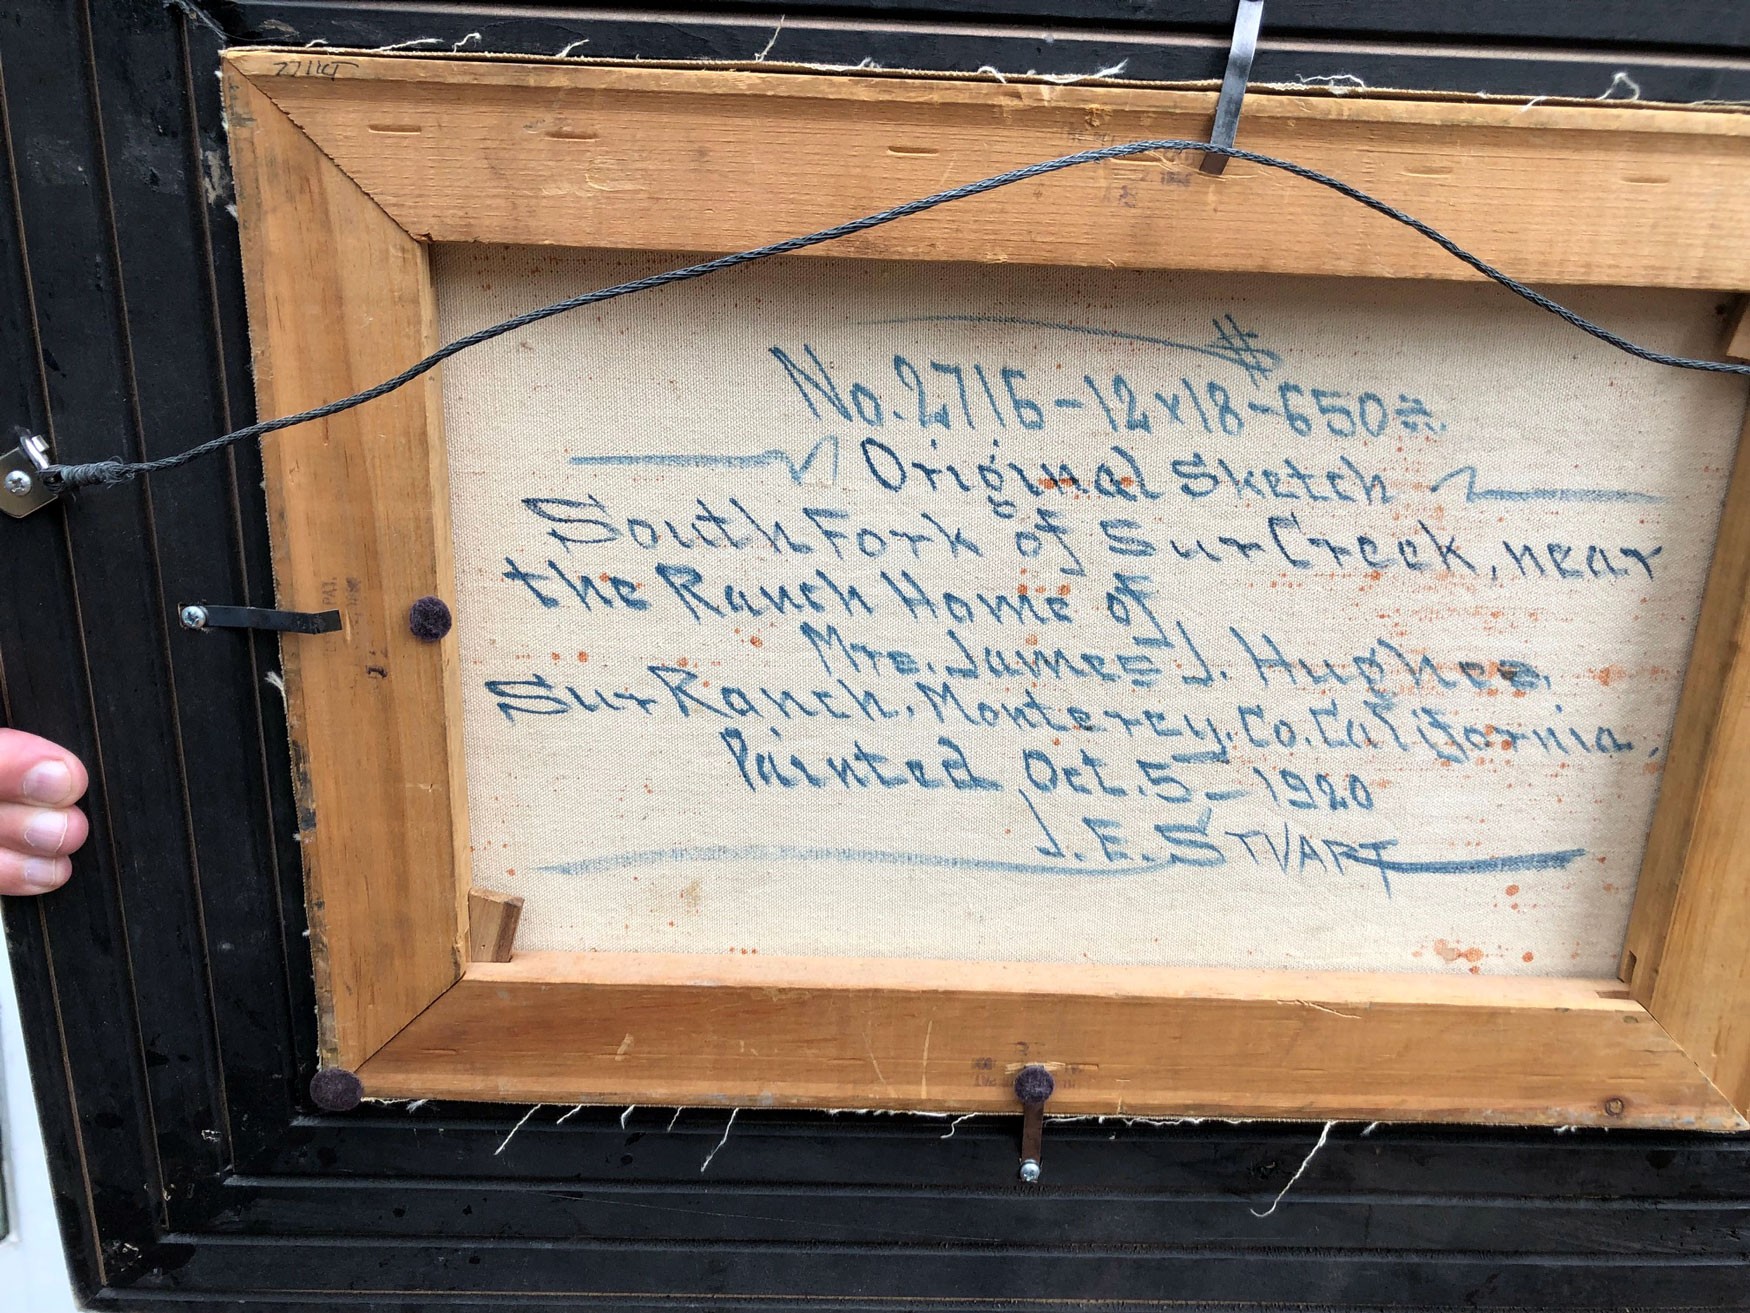 No. 2716 - 12x18 - $650
Original Sketch
South Fork of Sur Creek, near
the Ranch Home of
Mrs. James J. Hughes,
Sur Ranch, Monterey, Co. California,
Painted Oct. 5 - 1920
J. E. STUART